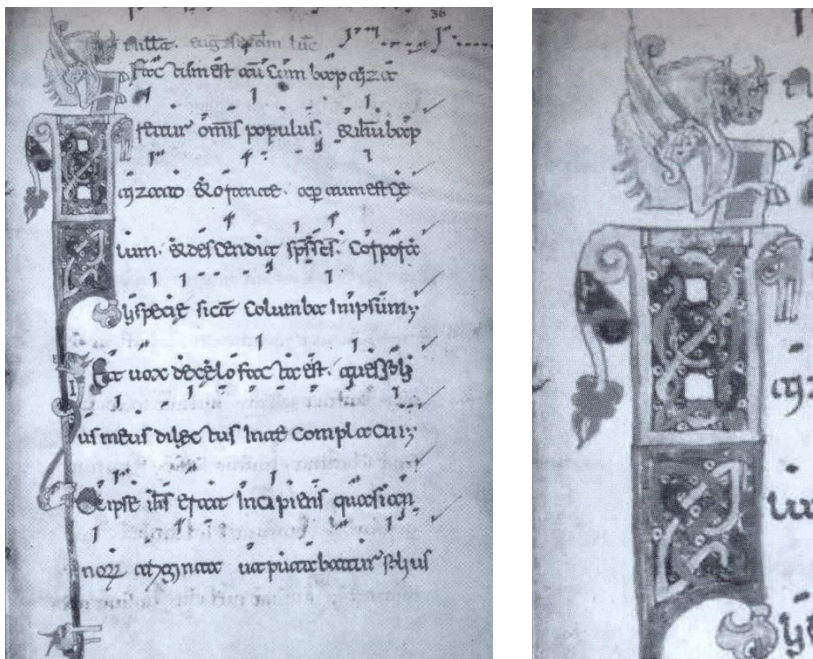 36
secdm luc
Factum est au cum baptiza
retur omis populus. & ihu bap
tizato & orante. apertum est ce
lum. & descendit sps scs. corpora
li specie sicut columba in ipsum;
Et uox de celo facta est. tu es fili
us meus dilectus in te complacui;
Et ipse ihs erat incipiens quasi an
norum triginta ut putabatur filius